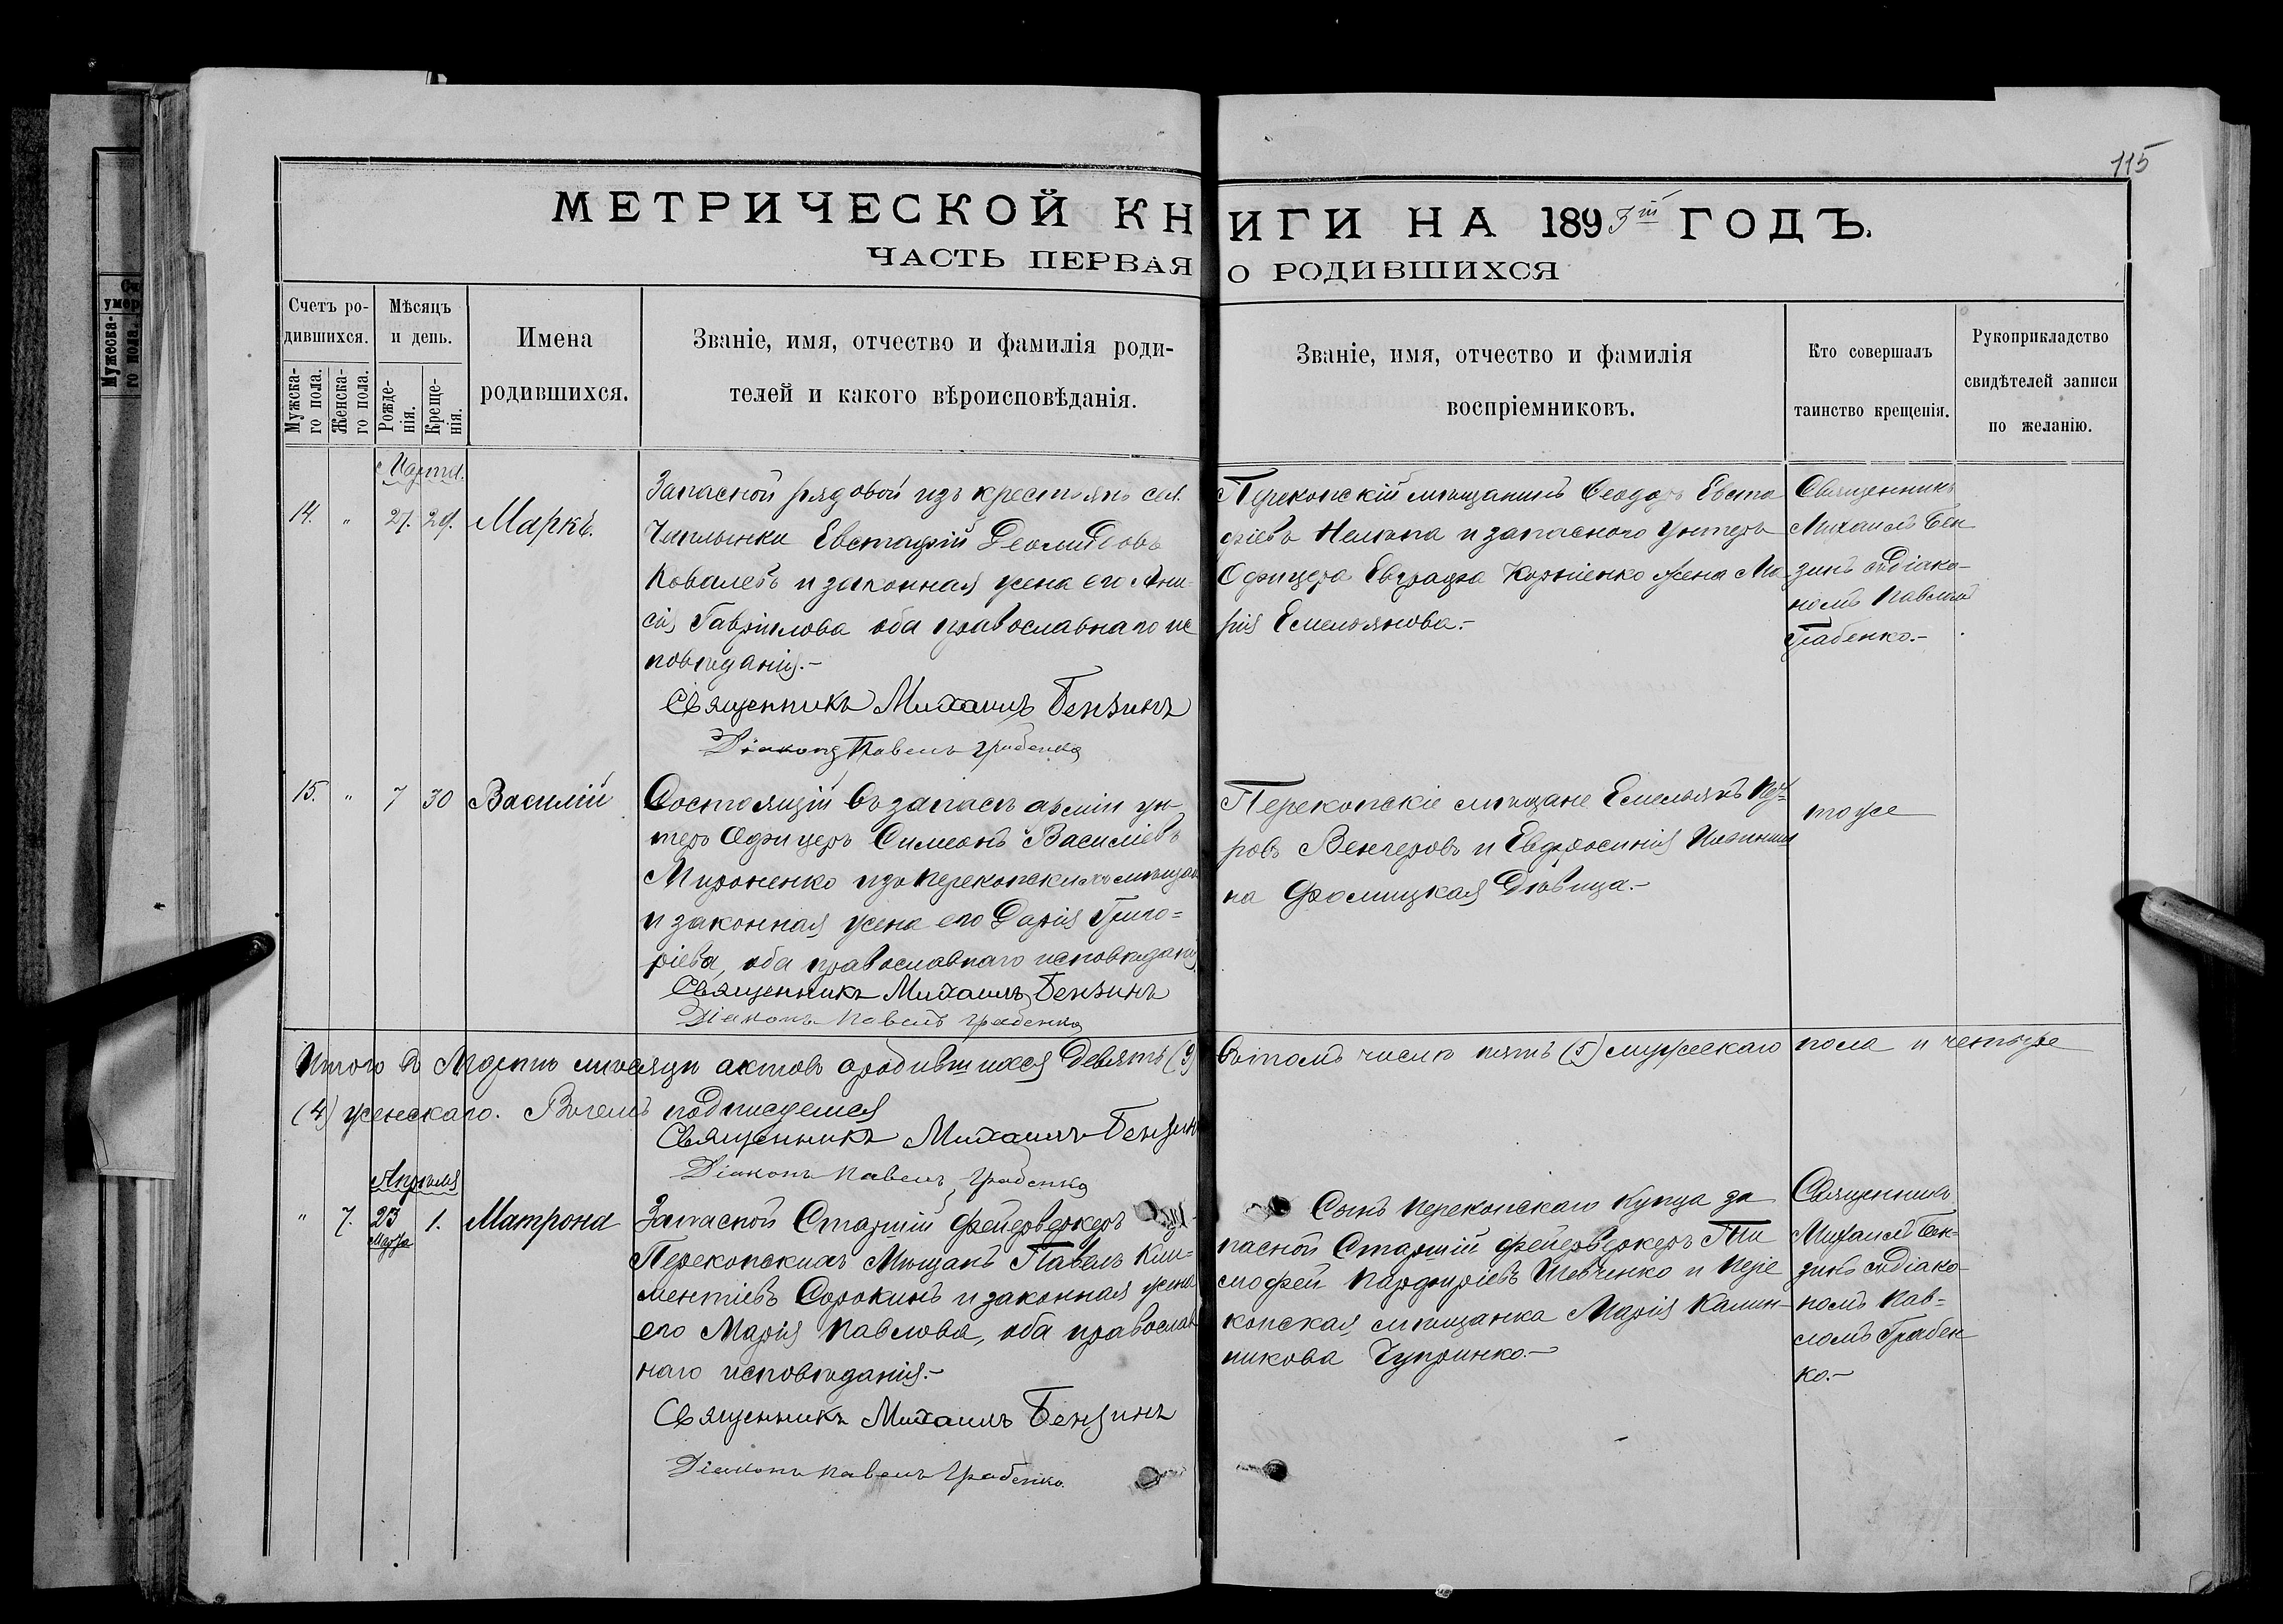 115
МЕТРИЧЕСКОЙ КНИГИ НА 1893 ГОДЪ.
ЧАСТЬ ПЕРВАЯ О РОДИВШИХСЯ
Счетъ ро-
дившихся.
Мужска-
го пола.
Женска-
го пола.
Мѣсяцъ
и день.
Рожде-
нія.
Креще-
нія.
Имена
родившихся.
Званіе, имя, отчество и фамилія роди-
телей и какого вѣроисповѣданія.
Званіе, имя, отчество и фамилія
воспріемниковъ.
Кто совершалъ
таинство крещенія.
Рукоприкладство
свидѣтелей записи
по желанію.
Марта.
14. " 27. 29. Маркъ.
Запасной рядовой изъ крестьянъ сел.
Чаплынки Евстафій Деомидовъ
Ковалевъ и законная жена его Ани-
сія Гаврилова оба православнаго ис
повѣданія.-
Священникъ Михаилъ Бензинъ
Діаконъ Павелъ Грабенко
Перекопскій мѣщанинъ Ѳеодоръ Евста
фіевъ и запасного Унтеръ
Офицера Корніенко жена Ма
рія Емельянова.-
Священникъ
Михаилъ Бен
зинъ съ діако-
номъ Павломъ
Грабенко.-
15. " 7 30 Василій
Состоящій въ запасѣ арміи ун-
теръ Офицеръ Симеонъ Василіевъ
Мироненко изъ перекопскихъ мѣщан
и законная жена его Дарія Григо=
ріева, оба православнаго исповѣданія
Священникъ Михаилъ Бензинъ
Діаконъ Павелъ Грабенко
Перекопскіе мѣщане Емельянъ
ровъ Венгеровъ и Евфросинія
на Фомицкая Дѣвица.-
тоже
Итого въ Мартѣ мѣсяцѣ актовъ о родившихся Девять (9) въ томъ числѣ пять (5) мужескаго пола и четыре
(4) женскаго. Въ чемъ подписуемся
Священникъ Михаилъ Бензин
Діаконъ Павелъ Грабенко
Апрѣля
" 7. 23 1. Матрона
Марта
Запасной Старшій фейерверкеръ
Перекопскихъ Мѣщанъ Павелъ Кли=
ментіевъ Сорокинъ и законная жена
его Марія Павлова, оба православ
наго исповѣданія.-
Священникъ Михаилъ Бензинъ
Діаконъ Павелъ Грабенко.
Сынъ перекопскаго Купца за
пасной Старшій фейерверкеръ Ти
мофей Парфиріевъ Шевченко и пере
копская мѣщанка Марія Калин-
никова Чупринко.-
Священникъ
Михаилъ Бен-
зинъ съ діако-
номъ Пав=
ломъ Грабен
ко.-